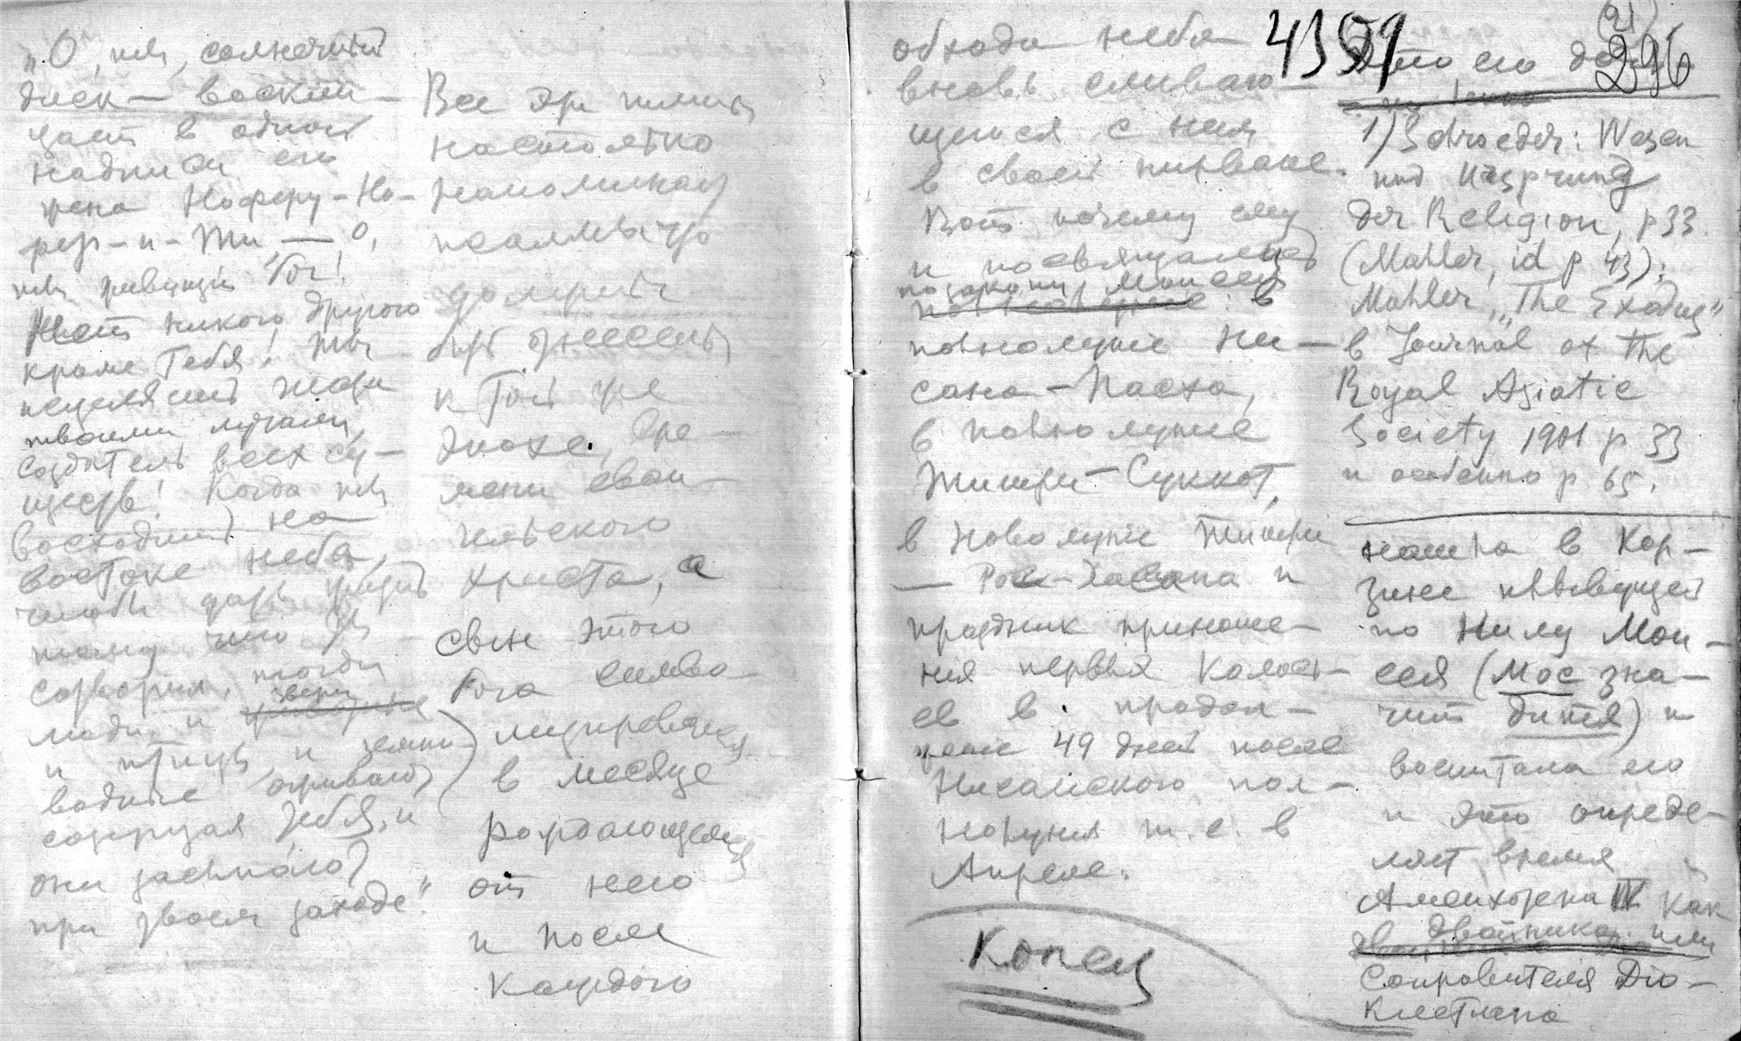 „О, ты, солнечный
диск — воскли-
цает в одной
надписи его
женаНоферу-Но-
фер-и-Ти — о,
ты живущий Бог!
Нет никого другого
кроме Тебя! Ты
исцеляешь
твоими лучами,
создатель всех су-
ществ! Когда ты
восходишь на
востоке неба,
чтобы дать жизнь
тому что Ты
сотворил, тогда
люди, и звери
и птицы, и земно-
водные
созерцая Тебя, и
они засыпают
при твоем заходе“.
Все эти гимны
настолько
напоминают
псалмы что
должны
быть отнесены
к той же
эпохе, вре-
мени еван-
гельского
Христа, а
сын этого
Бога симво-
лизировался
в месяце
рождающемся
от него
и после
каждого
обхода неба
вновь сливаю-
щемся с ним
в своей нирване.
Вот почему ему
и посвящалась
по закону Моисея
в
полнолуние Ни-
сана — Пасха,
в полнолуние
Тишри — Суккот,
в новолуние Тишри
— Рош-Хасана и
праздник приноше-
ния первых колось-
ев в продол-
жение 49 дней после
Нисанского пол-
нолуния т. е. в
Апреле.
Конец
4359
(21)
296
Это его
1) Schroeder: Wesen
und Ursprung
der Religion, p 33.
(Mahler, id p 43);
Mahler „The Exodus“
в Journal of the
Royal Asiatic
Society 1901 p 33
и особенно p 65.
нашла в кор-
зине плывущей
по Нилу Мои-
сея (Мос зна-
чит дитя) и
воспитала его
и это опреде-
ляет время
Аменхотепа IV как
двойника или
Соправителя Дио-
клетиана